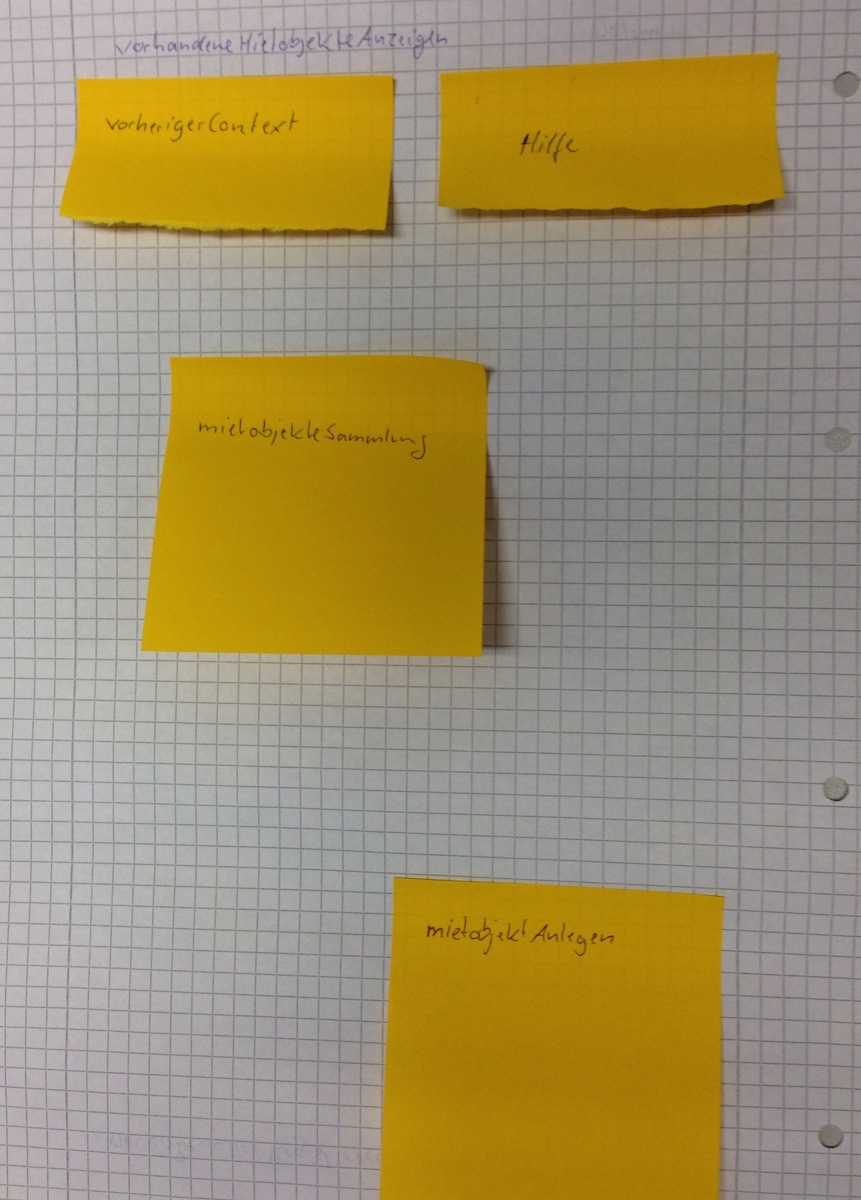 vorhandeneMietobjekteAnzeigen
vorherigerContext
Hilfe
mietobjekteSammlung
mietobjektAnlegen